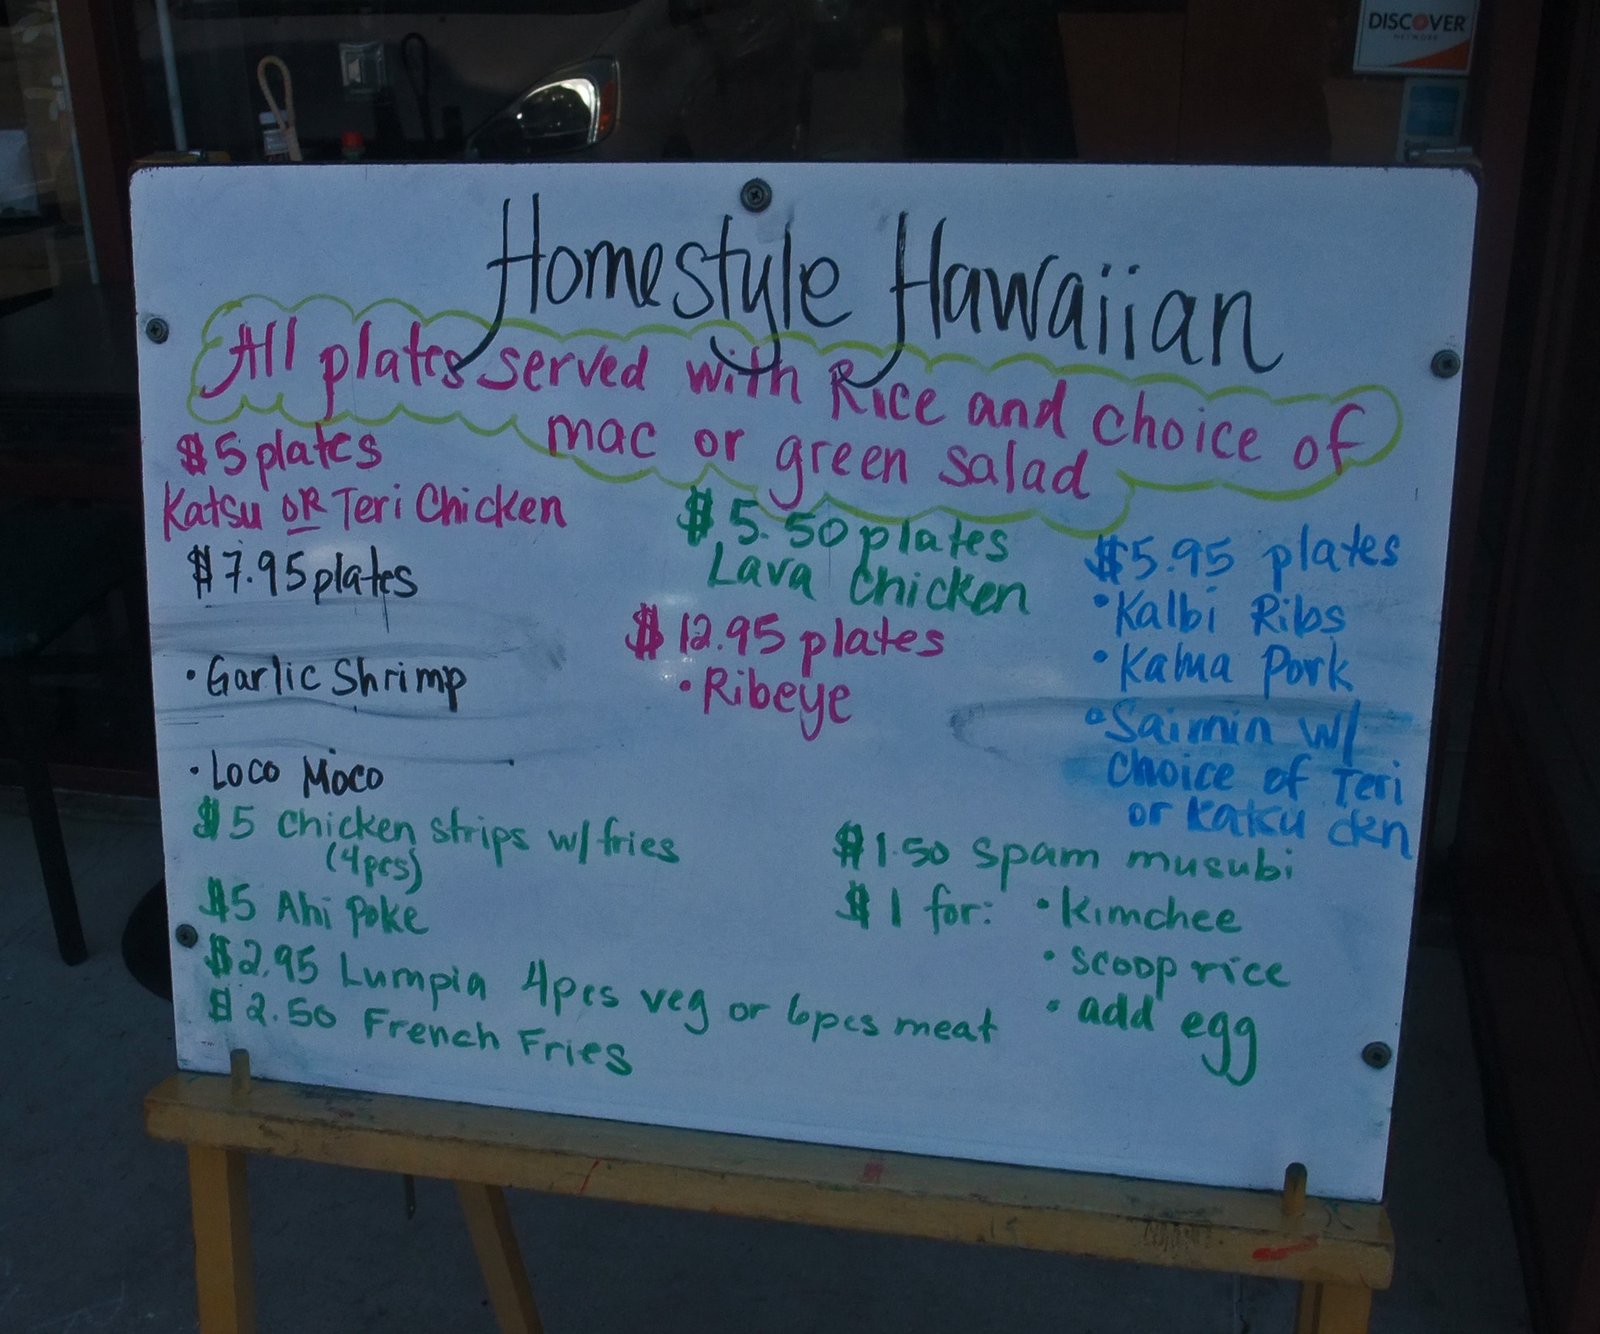 DISCOVER
NETWORK
Homestyle Hawaiian
All plates served with Rice and choice of
mac or green salad
$5 plates
Katsu OR Teri Chicken
$7.95 plates
• Garlic Shrimp
• Loco Moco
$5.50 plates
Lava Chicken
$12.95 plates
• Ribeye
$5.95 plates
• Kalbi Ribs
• Kalua Pork
• Saimin w/
Choice of Teri
or Katsu ckn
$5 Chicken strips w/ fries
(4pcs)
$5 Ahi Poke
$2.95 Lumpia 4pcs veg or 6pcs meat
$2.50 French Fries
$1.50 Spam musubi
$1 for: • Kimchee
• scoop rice
• add egg